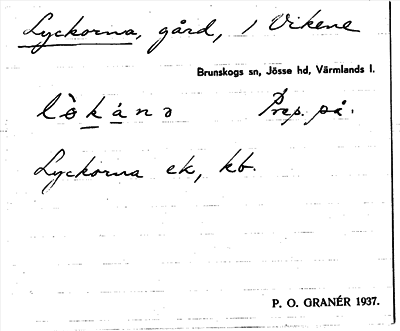 Lyckorna, gård, i Vikene
Brunskogs sn, Jösse hd, Värmlands l.
lò̀kánə Prep. på.
Lyckorna ek, kb.
P. O. GRANÉR 1937.